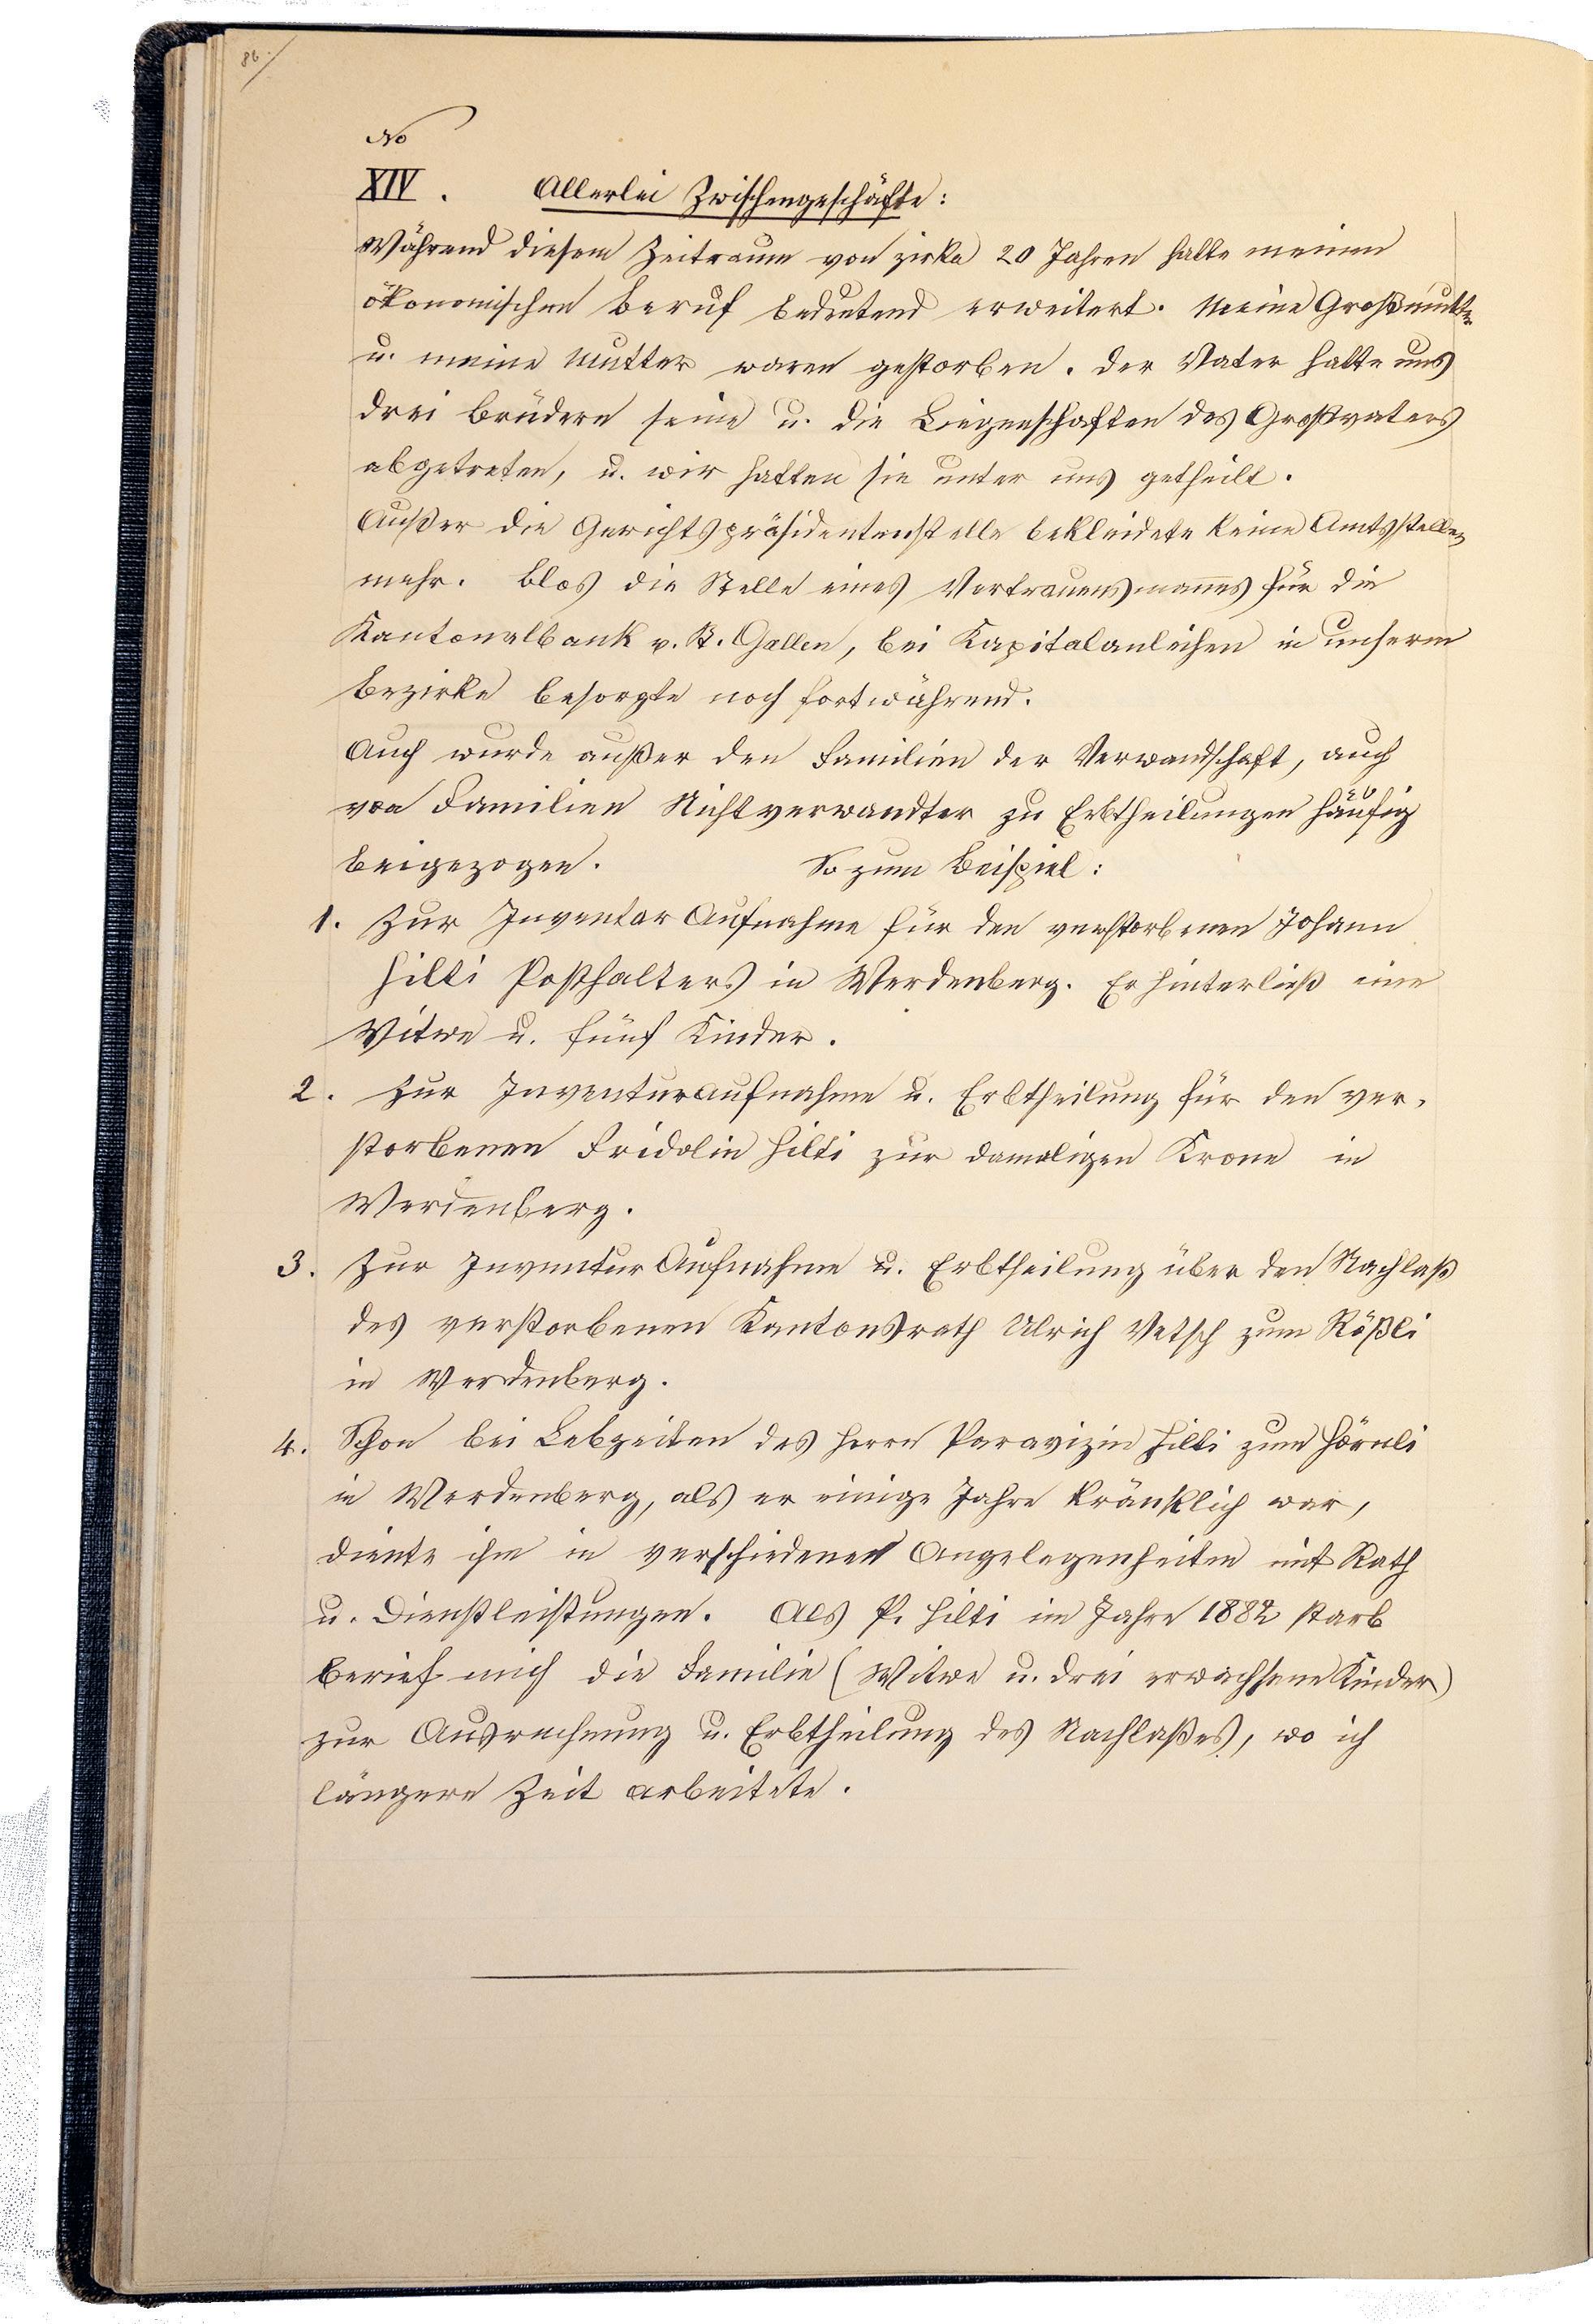 86.
No
XIV. Allerlei Zwischengeschäfte:
Während diesem Zeitraum von zirka 20 Jahren hatte meinen
ökonomischen Beruf bedeutend erweitert. Meine Großmutter
u. meine Mutter waren gestorben. Der Vater hatte uns
drei Brüdern seine u. die Liegenschaften des Großvaters
abgetreten, u. wir hatten sie unter uns getheilt.
Außer die Gerichtspräsidentenstelle bekleidete keine Amtsstellen
mehr. Blos die Stelle eines Vertrauensmannes für die
Kantonalbank v. St. Gallen, bei Kapitalanleihen in unserm
Bezirke besorgte noch fortwährend.
Auch wurde außer den Familien der Verwandschaft, auch
von Familien Nichtverwandter zu Erbtheilungen häufig
beigezogen. So zum Beispiel:
1. Zur Inventar Aufnahme für den verstorbenen Johann
Hilti Posthalters in Werdenberg. Er hinterließ eine
Witwe u. fünf Kinder.
2. Zur Inventuraufnahme u. Erbtheilung für den ver-
storbenen Fridolin Hilti zur damaligen Krone in
Werdenberg.
3. Zur Inventur Aufnahme u. Erbtheilung über den Nachlaß
des verstorbenen Kantonsrath Ulrich Vetsch zum Rößli
in Werdenberg.
4. Schon bei Lebzeiten des Herrn Paravizin Hilti zum Hörnli
in Werdenberg, als er einige Jahre kränklich war,
diente ihm in verschiedenen Angelegenheiten mit Rath
u. Dienstleistungen. Als P. Hilti im Jahre 1884 starb
berief mich die Familie (Witwe u. drei erwachsene Kinder)
zur Ausrechnung u. Erbtheilung des Nachlaßes, wo ich
längere Zeit arbeitete.